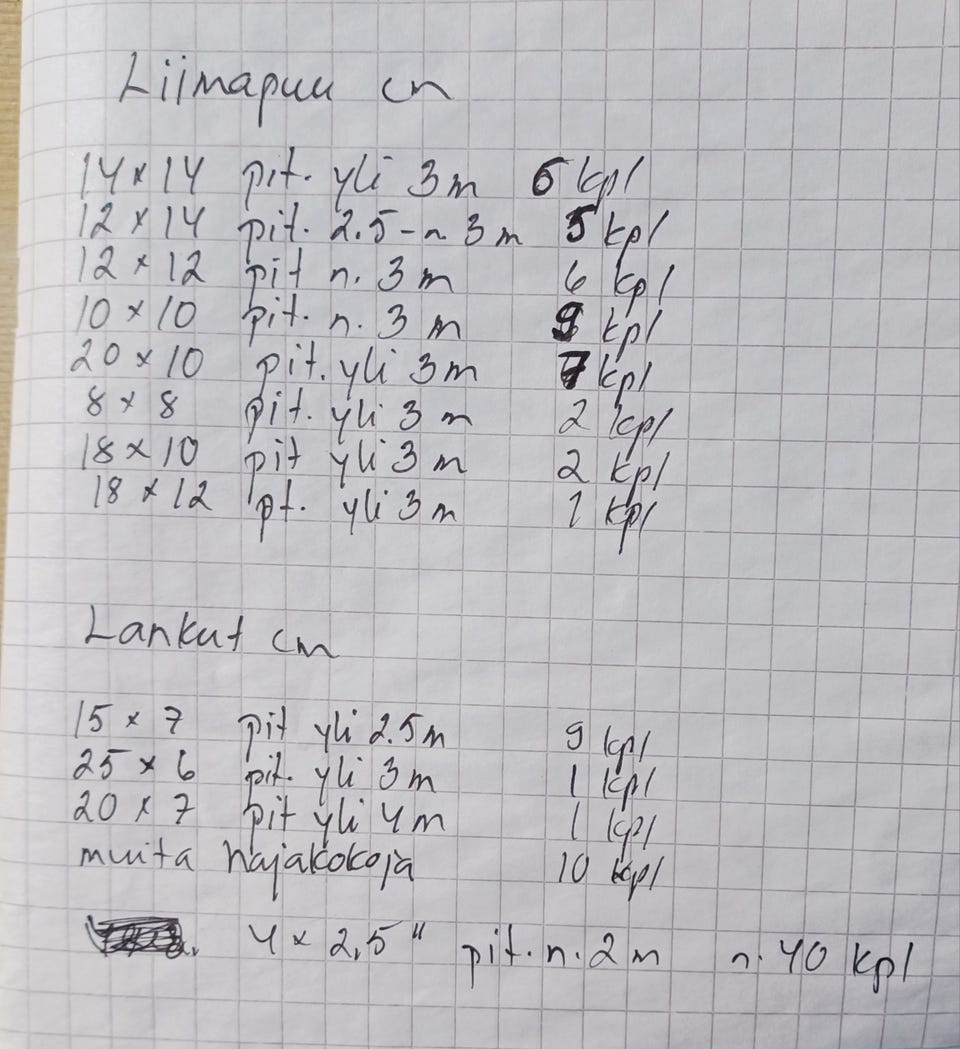 Liimapuu cm
14 x 14 pit. yli 3 m 6 kpl
12 x 14 pit. 2.5 - n 3 m 5 kpl
12 x 12 pit n. 3 m 6 kpl
10 x 10 pit. n. 3 m 9 kpl
20 x 10 pit. yli 3 m 7 kpl
8 x 8 pit. yli 3 m 2 kpl
18 x 10 pit yli 3 m 2 kpl
18 x 12 pt. yli 3 m 1 kpl
Lankut cm
15 x 7 pit yli 2.5 m 9 kpl
25 x 6 pit. yli 3 m 1 kpl
20 x 7 pit yli 4 m 1 kpl
muita hajakokoja 10 kpl
4 x 2,5" pit. n. 2 m n. 40 kpl